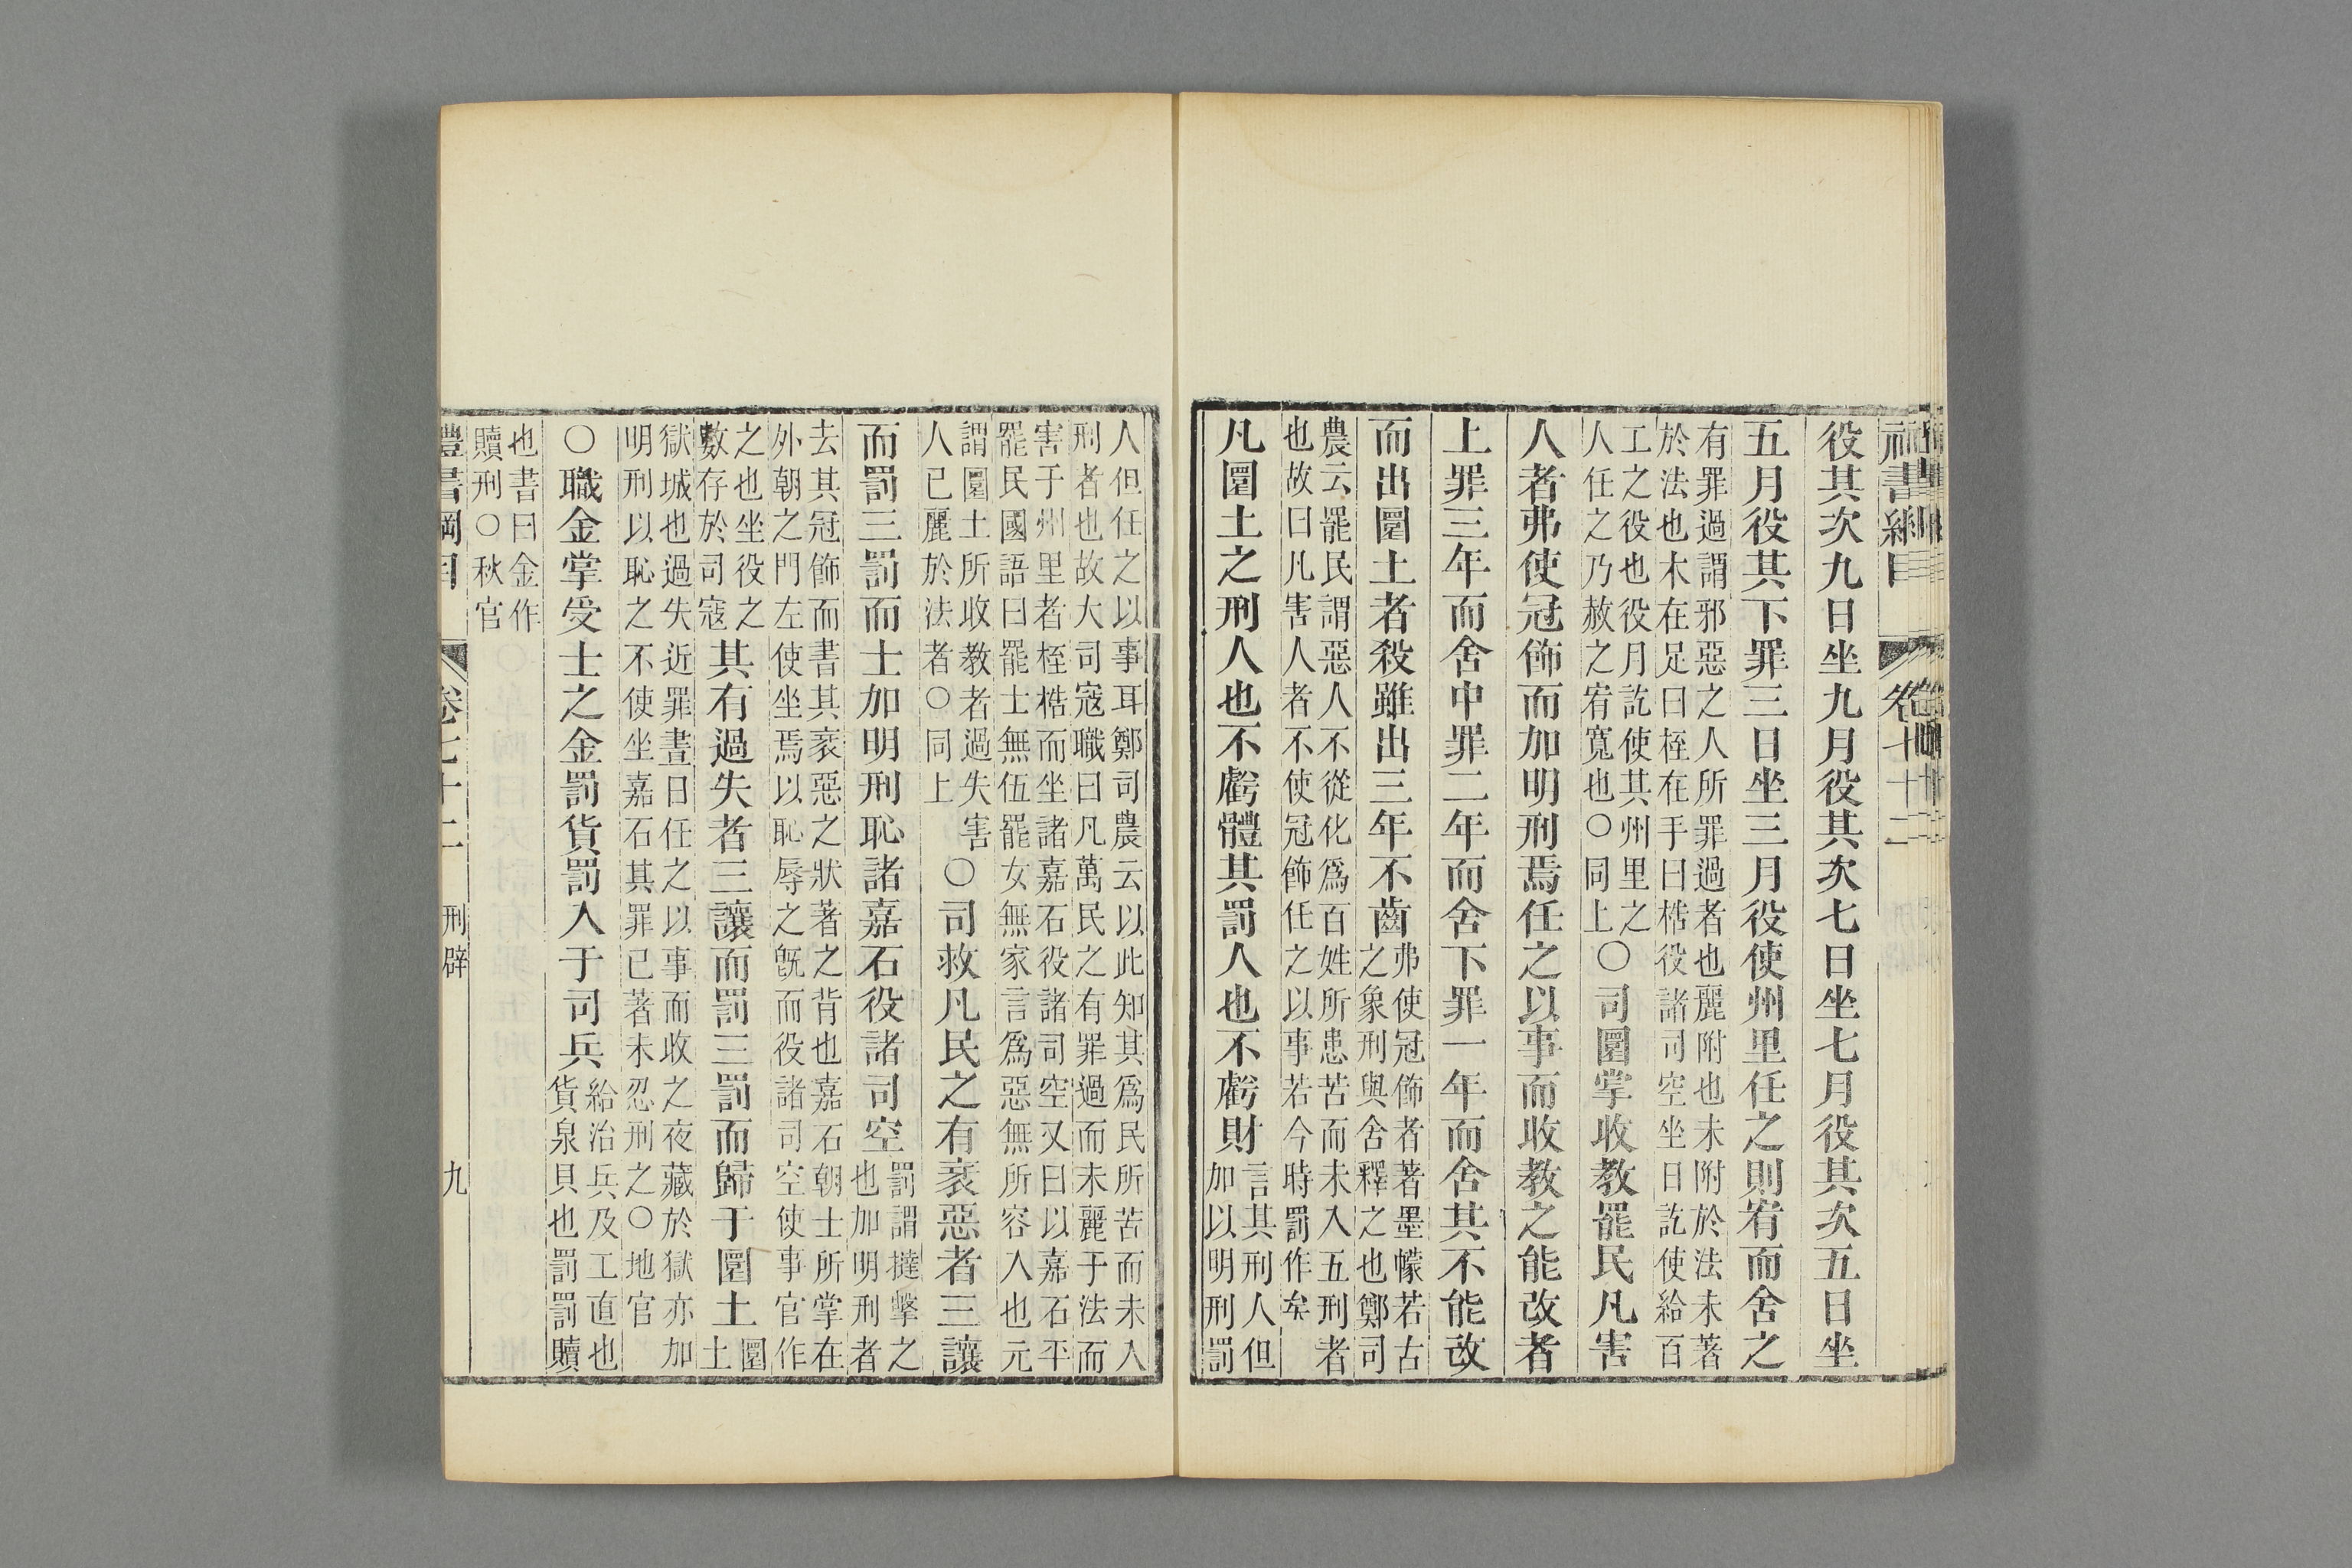 役其次九日坐九月役其次七日坐七月役其次五日坐
五月役其下罪三日坐三月役使州里任之則宥而舍之
有罪過謂邪惡之人所罪過者也麗附也未附於法未著
於法也木在足曰桎在手曰梏役諸司空坐日訖使給百
工之役也役月訖使其州里之
人任之乃赦之宥寬也○同上
○司圜掌收教罷民凡害
人者弗使冠飾而加明刑焉任之以事而收教之能改者
上罪三年而舍中罪二年而舍下罪一年而舍其不能改
而出圜土者殺雖出三年不齒
弗使冠飾者著墨幪若古
之象刑與舍釋之也鄭司
農云罷民謂惡人不從化爲百姓所患苦而未入五刑者
也故曰凡害人者不使冠飾任之以事若今時罰作矣
凡圜土之刑人也不虧體其罰人也不虧財
言其刑人但
加以明刑罰
人但任之以事耳鄭司農云以此知其爲民所苦而未入
刑者也故大司寇職曰凡萬民之有罪過而未麗于法而
害于州里者桎梏而坐諸嘉石役諸司空又曰以嘉石平
罷民國語曰罷士無伍罷女無家言爲惡無所容入也元
謂圜土所收教者過失害
人已麗於法者○同上
○司救凡民之有衺惡者三讓
而罰三罰而士加明刑恥諸嘉石役諸司空
罰謂撻擊之
也加明刑者
去其冠飾而書其衺惡之狀著之背也嘉石朝士所掌在
外朝之門左使坐焉以恥辱之旣而役諸司空使事官作
之也坐役之
數存於司寇
其有過失者三讓而罰三罰而歸于圜土
圜
土
獄城也過失近罪晝日任之以事而收之夜藏於獄亦加
明刑以恥之不使坐嘉石其罪已著未忍刑之○地官
○職金掌受士之金罰貨罰入于司兵
給治兵及工直也
貨泉貝也罰罰贖
也書曰金作
贖刑○秋官
禮書綱目 卷七十二 刑辟 九